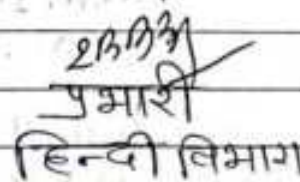 प्रभारी
हिन्दी विभाग